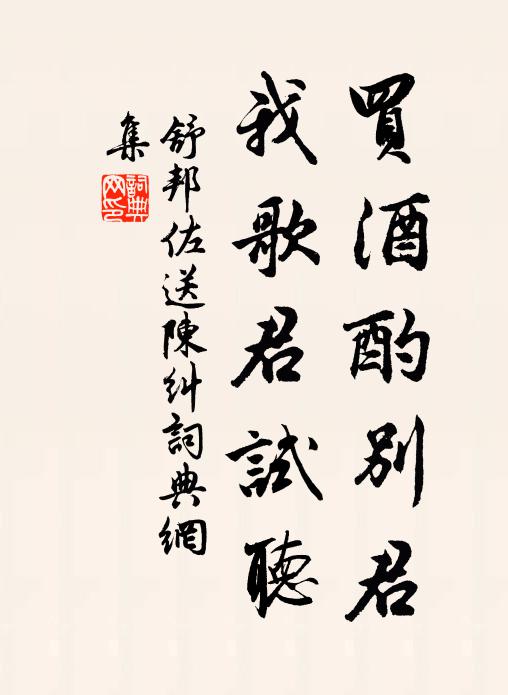 買酒酌別君
我歌君試聽
舒邦佐送陳糾詞典網
集
詞典網印